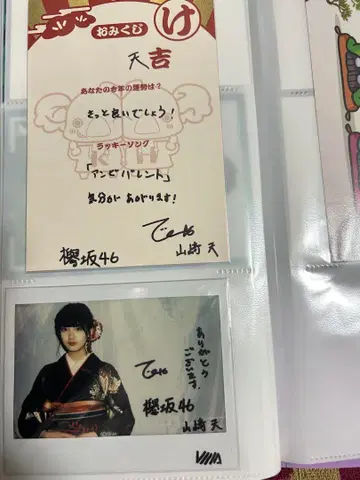 け
おみくじ
天吉
あなたの今年の運勢は?
きっと良いでしょう!
ラッキーソング
「アンビバレント」
気分があがります!
欅坂46
山﨑 天
ありがとう
ございます!
欅坂46
山﨑 天